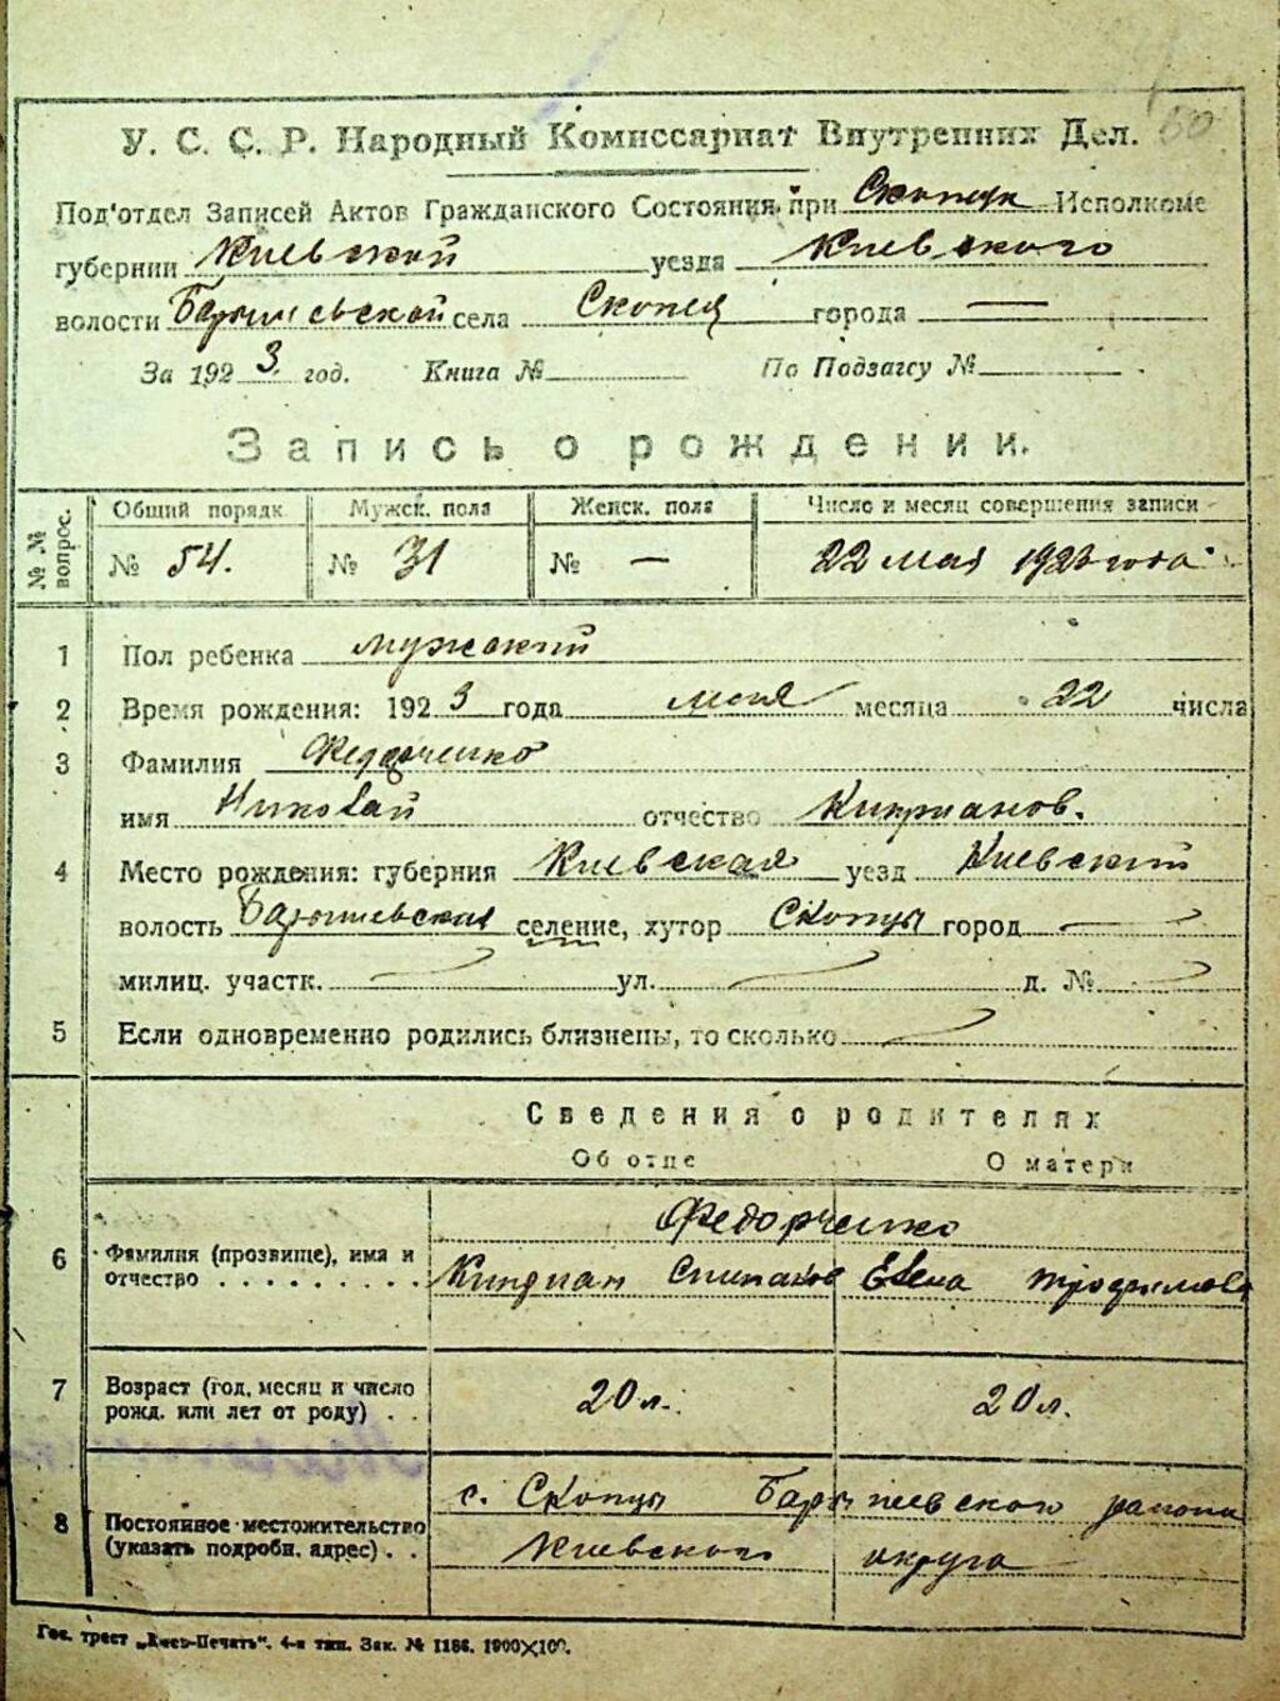 60
У. С. С. Р. Народный Комиссариат Внутренних Дел.
Под'отдел Записей Актов Гражданского Состояния при Скопцк Исполкоме
губернии Киевской уезда Киевского
волости Барышевской села Скопцы города —
За 1923 год. Книга № По Подзагсу №
Запись о рождении.
№ № вопрос. Общий порядк Мужск. пола Женск. пола Число и месяц совершения записи
№ 54. № 31 № — 22 мая 1923 года
1 Пол ребенка мужский
2 Время рождения: 1923 года мая месяца 22 числа
3 Фамилия Федорченко
имя Николай отчество Киприанов.
4 Место рождения: губерния Киевская уезд Киевский
волость Барышевская селение, хутор Скопцы город —
милиц. участк. — ул. — д. № —
5 Если одновременно родились близнецы, то сколько —
Сведения о родителях
Об отце О матери
Федорченко
6 Фамилия (прозвище), имя и
отчество . . . . . . . . . Киприан Елена Трофимова
7 Возраст (год, месяц и число
рожд. или лет от роду) . . 20 л. 20 л.
с. Скопцы Барышевского района
8 Постоянное местожительство
(указать подробн. адрес) . . Киевского округа
Гос. трест „Киев-Печать“. 4-я тип. Зак. № 1186. 1900×100.